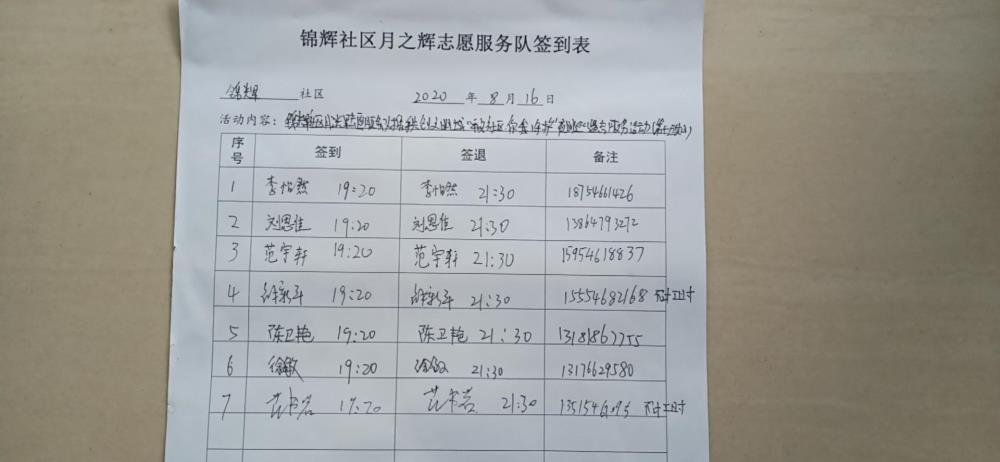 锦辉社区月之辉志愿服务队签到表
锦辉 社区 2020 年 8 月 16 日
活动内容:
序号 签到 签退 备注
1 李怡然 19:20 李怡然 21:30 18754661426
2 刘恩佳 19:20 刘恩佳 21:30 13864793272
3 范宇轩 19:20 范宇轩 21:30 15954618837
4 19:20 21:30 15554682168 不计工时
5 陈卫艳 19:20 陈卫艳 21:30 13181867755
6 徐敏 19:20 徐敏 21:30 13176629580
7 21:30 不计工时